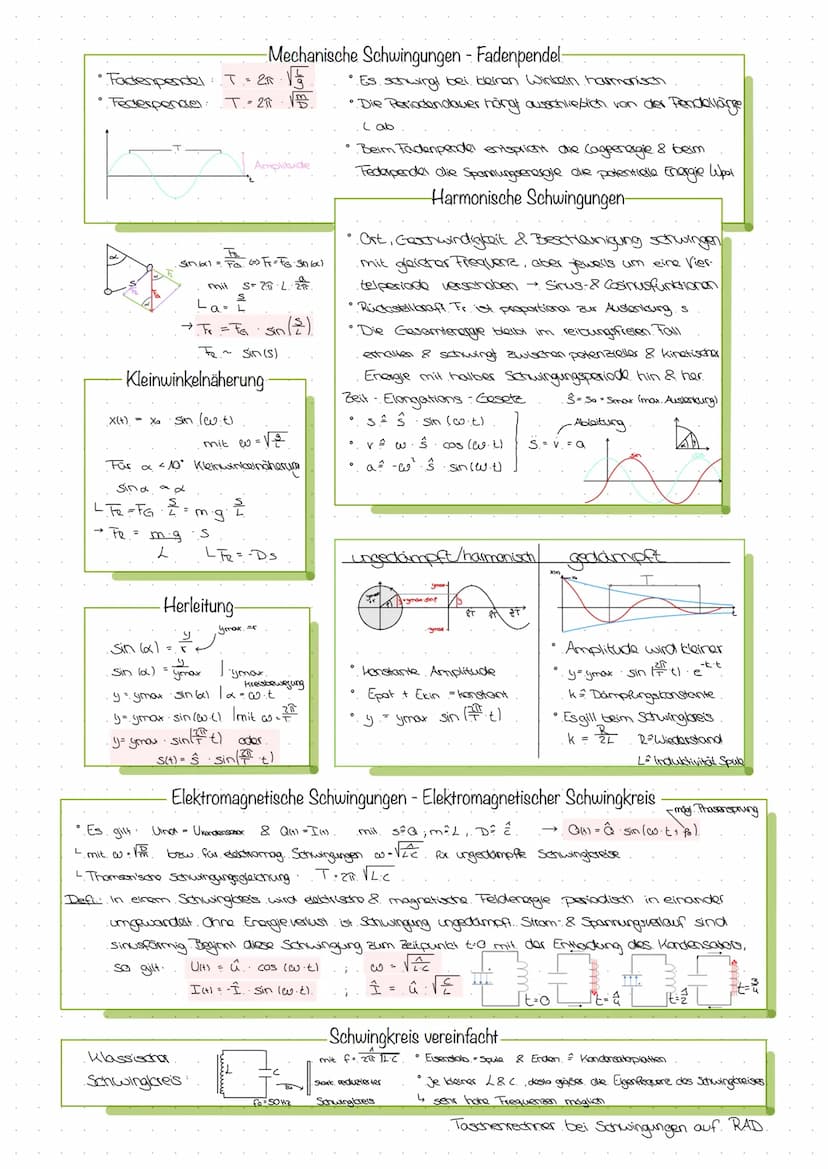 Mechanische Schwingungen - Fadenpendel
° Fadenpendel: T = 2π · √(L/g)
° Federpendel: T = 2π · √(m/D)
T
Amplitude
t
° Es schwingt bei kleinen Winkeln harmonisch
° Die Periodendauer hängt ausschließlich von der Pendellänge
L ab.
° Beim Fadenpendel entspricht die Lageenergie & beim
Federpendel die Spannungsenergie die potentielle Energie Wpot
Harmonische Schwingungen
° Ort, Geschwindigkeit & Beschleunigung schwingen
mit gleicher Frequenz, aber jeweils um eine Vier-
telperiode verschoben → Sinus- & Cosinusfunktionen
° Rückstellkraft Fr ist proportional zur Auslenkung s
° Die Gesamtenergie bleibt im reibungsfreien Fall
erhalten & schwingt zwischen potenzieller & kinetischer
Energie mit halber Schwingungsperiode hin & her.
Zeit - Elongations - Gesetz ŝ = s₀ = smax (max. Auslenkung)
° s ≙ ŝ · sin (ω·t)
° v ≙ ω · ŝ · cos (ω·t)
° a ≙ -ω² · ŝ · sin (ω·t)
Ableitung
s̈ = v̇ = a
sin
α
sin(α) = FR/FG ⇔ Fr = FG · sin(α)
mit s = 2π · L · α/2π
└ α = s/L
→ Fr = FG · sin(s/L)
FR ~ sin(s)
Kleinwinkelnäherung
x(t) = x₀ · sin (ω·t)
mit ω = √(g/L)
Für α < 10° Kleinwinkelnäherung
sin α ≈ α
└ FR = FG · s/L = m·g · s/L
→ FR = m·g/L · s
└ FR = -Ds
Herleitung
sin (α) = y/r
ymax = r
sin (α) = y/ymax | · ymax
Kreisbewegung
y = ymax · sin(α) | α = ω·t
y = ymax · sin(ω·t) | mit ω = 2π/T
y = ymax · sin(2π/T · t) oder
s(t) = ŝ · sin(2π/T · t)
ungedämpft/harmonisch
° konstante Amplitude
° Epot + Ekin = konstant
° y = ymax sin(2π/T · t)
gedämpft
T
° Amplitude wird kleiner
° y = ymax · sin(2π/T t) · e^(-k·t)
k ≙ Dämpfungskonstante
° Es gilt beim Schwingkreis
k = R/2L R ≙ Wiederstand
L ≙ Induktivität Spule
Elektromagnetische Schwingungen - Elektromagnetischer Schwingkreis
mögl. Phasensprung
° Es gilt: Uind = UKondensator & Q̇(t) = I(t) mit s≙Q; m≙L, D≙1/C → Q(t) = Q̂ · sin(ω·t + β)
└ mit ω = √(D/m) bzw. für elektromag. Schwingungen ω = √(1/LC) für ungedämpfte Schwingkreise
└ Thomson'sche Schwingungsgleichung: T = 2π · √(L·C)
Def.: In einem Schwingkreis wird elektrische & magnetische Feldenergie periodisch in einander
umgewandelt. Ohne Energieverlust ist Schwingung ungedämpft. Strom- & Spannungsverlauf sind
sinusförmig. Beginnt diese Schwingung zum Zeitpunkt t=0 mit der Entladung des Kondensators,
so gilt: U(t) = û · cos (ω·t) ; ω = √(1/L·C)
I(t) = -Î · sin (ω·t) ; Î = û · √(C/L)
t=0 t=1/4 t=1/2 t=3/4
Schwingkreis vereinfacht
Klassischer
Schwingkreis:
L
C
f₀=50Hz
mit f = 1/(2π√(L·C))
stark reduzierter
Schwingkreis
° Eisenstab = Spule & Enden ≙ Kondensatorplatten
° Je kleiner L & C, desto größer die Eigenfrequenz des Schwingkreises
↳ sehr hohe Frequenzen möglich
Taschenrechner bei Schwingungen auf RAD.